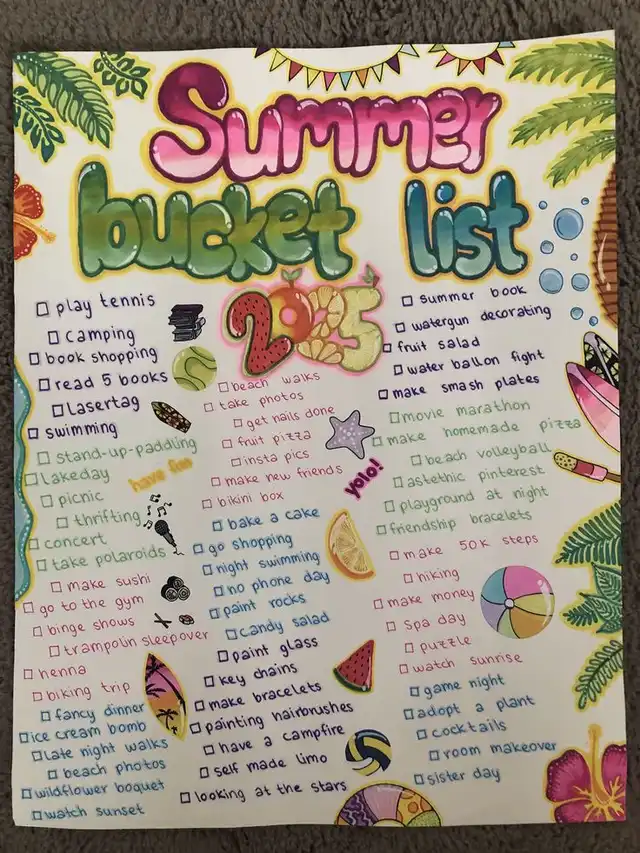 Summer
bucket list
2025
☐ play tennis
☐ camping
☐ book shopping
☐ read 5 books
☐ Lasertag
☐ swimming
☐ stand-up-paddling
☐ Lakeday
☐ picnic
☐ thrifting
☐ concert
☐ take polaroids
☐ make sushi
☐ go to the gym
☐ binge shows
☐ trampolin sleepover
☐ henna
☐ biking trip
☐ fancy dinner
☐ ice cream bomb
☐ late night walks
☐ beach photos
☐ wildflower boquet
☐ watch sunset
have fun
☐ beach walks
☐ take photos
☐ get nails done
☐ fruit pizza
☐ insta pics
☐ make new friends
☐ bikini box
yolo!
☐ bake a cake
☐ go shopping
☐ night swimming
☐ no phone day
☐ paint rocks
☐ candy salad
☐ paint glass
☐ key chains
☐ make bracelets
☐ painting hairbrushes
☐ have a campfire
☐ self made limo
☐ looking at the stars
☐ summer book
☐ watergun decorating
☐ fruit salad
☐ water ballon fight
☐ make smash plates
☐ movie marathon
☐ make homemade pizza
☐ beach volleyball
☐ astethic pinterest
☐ playground at night
☐ friendship bracelets
☐ make 50k steps
☐ hiking
☐ make money
☐ spa day
☐ puzzle
☐ watch sunrise
☐ game night
☐ adopt a plant
☐ cocktails
☐ room makeover
☐ sister day